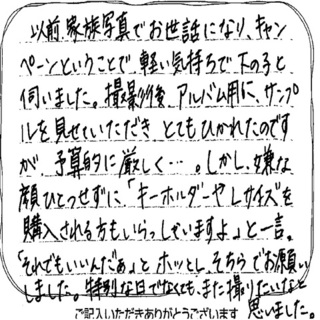 以前、家族写真でお世話になり、キャン
ペーンということで、軽い気持ちで下の子と
伺いました。撮影後、アルバム用に、サンプ
ルを見せていただき、とてもひかれたのです
が、予算的に厳しく…。しかし、嫌な
顔ひとつせずに、「キーホルダーやLサイズを
購入される方もいらっしゃいますよ」と一言。
「それでもいいんだぁ」とホッとし、そちらでお願い
しました。特別な日でなくても、また撮りたいなと
思いました。
ご記入いただきありがとうございます